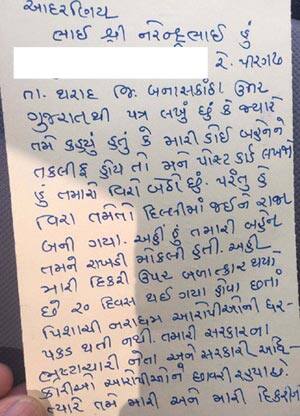 આદરણીય
ભાઈ શ્રી નરેન્દ્રભાઈ હું
રે. પીરગઢ
તા. થરાદ જિ. બનાસકાંઠા ઉત્તર
ગુજરાતથી પત્ર લખું છું કે જ્યારે
તમે કહ્યું હતું કે મારી કોઈ બહેનને
તકલીફ હોય તો મને પોસ્ટ કાર્ડ લખજો
હું તમારો વિરા બેઠો છું. પરંતુ હે
વિરા તમેતો દિલ્લીમાં જઈને રાજા
બની ગયા. અહીં હું તમારી બહેન
તમને રાખડી મોકલી હતી. અહીં
મારી દિકરી ઉપર બળાત્કાર થયો
છે ૨૦ દિવસ થઈ ગયા હોવા છતાં
પિશાચી નરાધમ આરોપીઓની ધર-
પકડ થતી નથી. તમારી સરકારના
ભ્રષ્ટાચારી નેતા અને સરકારી અધિ-
કારીઓ આરોપીઓને છાવરી રહ્યાછે.
ત્યારે તમે મારી અને મારી દિકરીની